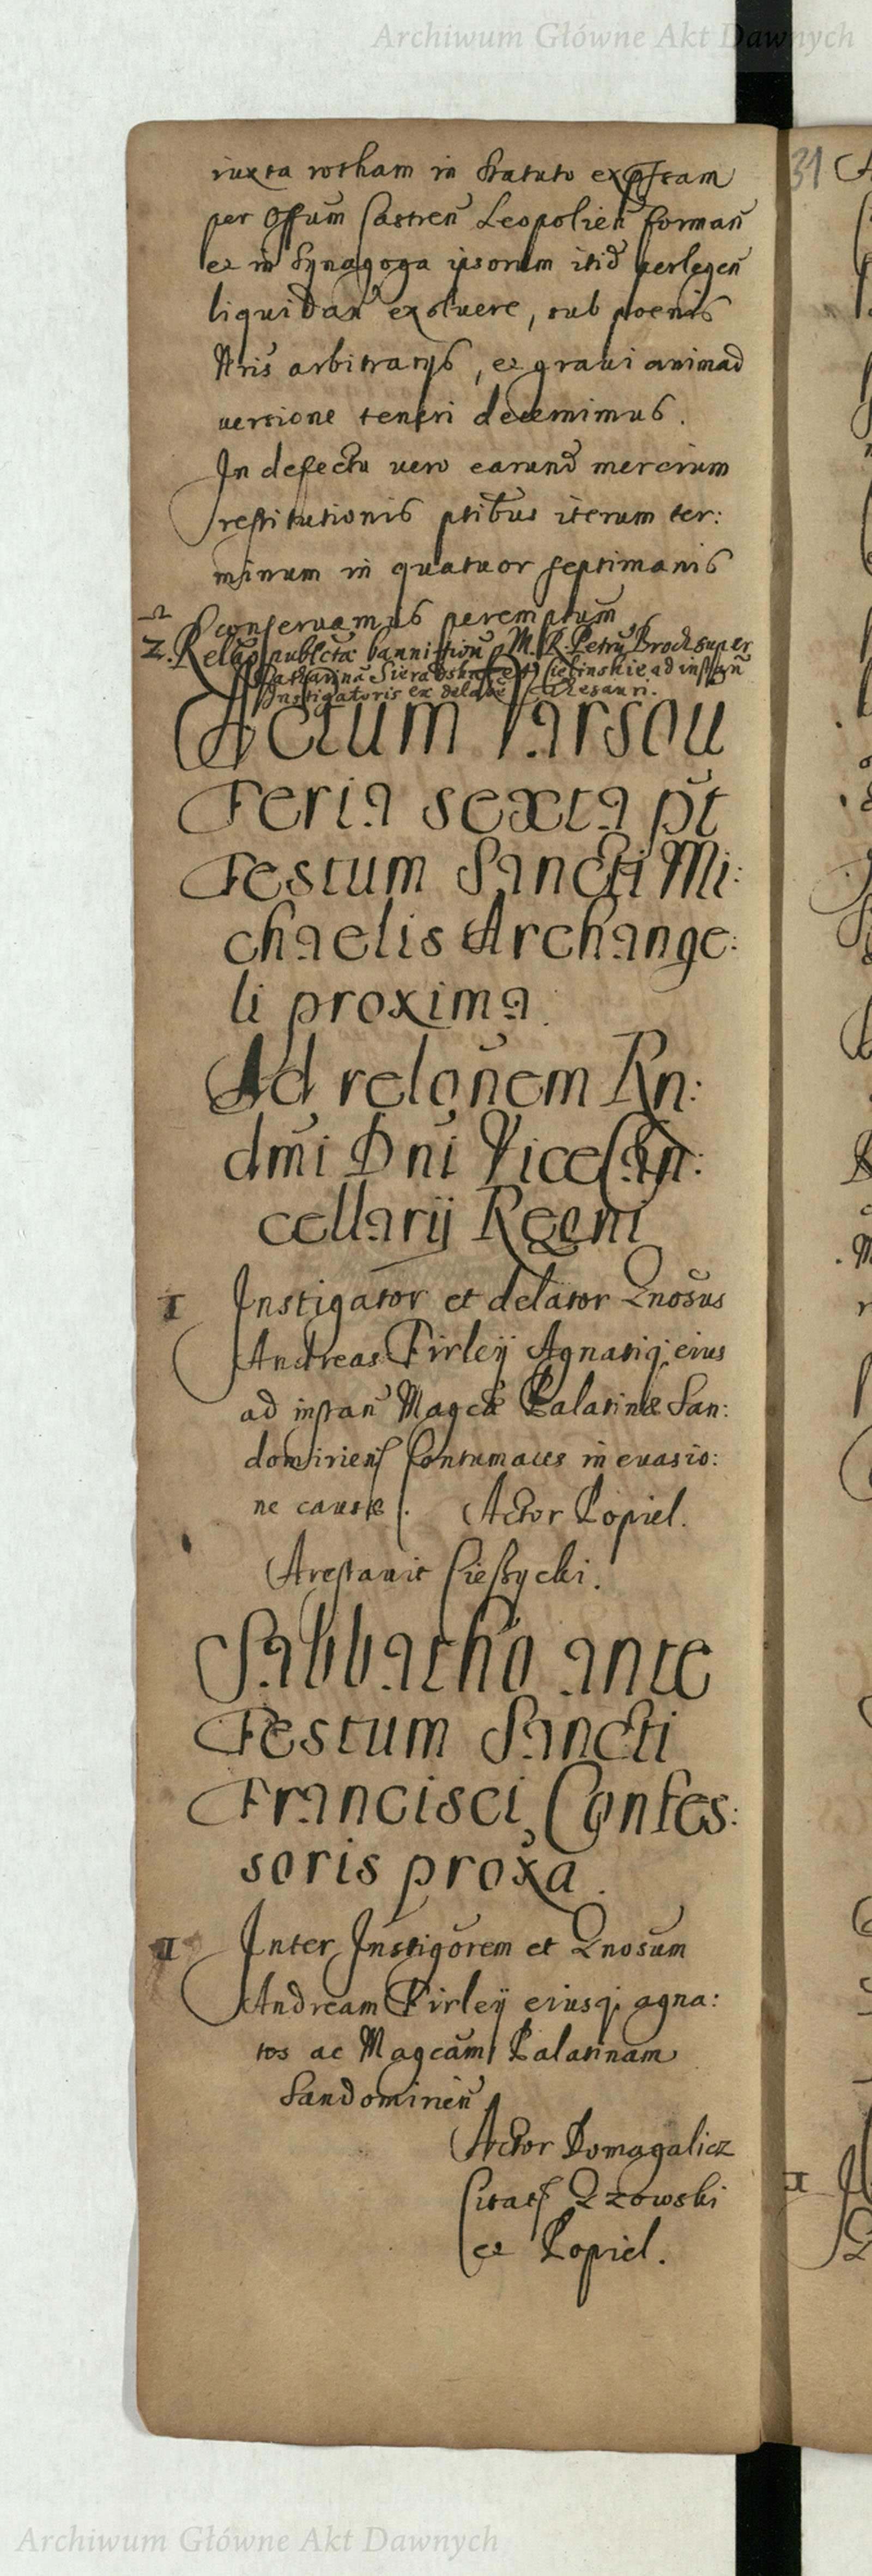 Archiwum Główne Akt Dawnych
iuxta rotham in Statuto expssam
per Offum Castren Leopolien forman
et in Synagoga ipsorum itid perlegen
liquidan exoluere, sub poenis
Nris arbitrarijs, et graui animad
uersione teneri decernimus.
In defectu uero earund mercium
restitutionis ptibus iterum ter:
minum in quatuor septimanis
conseruamus peremptum
2. Relao publcta bannition p M. R. Petru Broch super
Catharina Sieradska et Cielinskie ad instan
Instigatoris ex delaoe Thesauri.
Actum Varsou
Feria sexta pt
Festum Sancti Mi:
chaelis Archange:
li proxima.
Ad relonem Rn:
dmi Dni ViceCan:
cellarij Regni
1 Instigator et delator Gnosus
Andreas Firleij Agnatiq; eius
ad instan Magcae Palatinae San:
domirien Contumaces in euasio:
ne causae. Actor Popiel.
Arestauit Cieszycki.
Sabbatho ante
Festum Sancti
Francisci Confes:
soris proxa.
1 Inter Instigorem et Gnosum
Andream Firleij eiusq; agna:
tos ac Magcam Palatinam
Sandomirien
Actor Domagalicz
Citati Gzowski
et Popiel.
31
1
Archiwum Główne Akt Dawnych